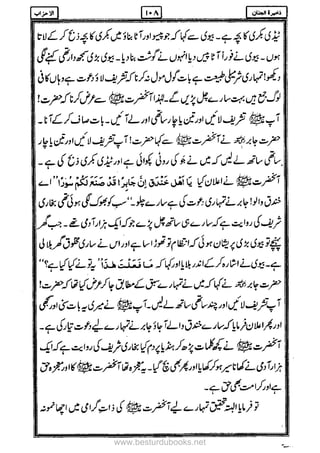 ذخیرة الجنان ۱۰۸ الاحزاب
ٹیڈی بکری کا بچہ ہے۔ بیوی سے کہا کہ جو پیسو اور آٹا بناؤ میں بکری کا بچہ ذبح کر کے لاتا
ہوں۔ بیوی نے فوراً آٹا پیس دیا انہوں نے گوشت بنا دیا۔ بیوی بڑی سمجھ دار تھی کہنے لگی
دیکھو! تمہاری شرمیلی طبیعت ہے بات گول مول نہ کرنا کہ تشریف لاؤ دعوت ہے وہاں کافی
لوگ جمع ہیں بہت سارے چل پڑیں گے۔ لہٰذا آنحضرت ﷺ سے عرض کرنا کہ حضرت!
آپ ﷺ تشریف لائیں اور تین چار ساتھی اور لے آئیں۔ بات صاف کر کے آنا۔
حضرت جابر رضی اللہ عنہ نے آنحضرت ﷺ سے کہا حضرت! آپ تشریف لائیں اور تین یا چار
ساتھی ساتھ لے لیں کہ میں نے جو کی روٹی پکوائی ہے اور ٹیڈی بکری ذبح کی ہے۔
آنحضرت ﷺ نے اعلان کیا یَا اَھْلَ خَنْدَقٍ اِنَّ جَابِرًا قَدْ صَنَعَ لَکُمْ سُوْرًا "اے
خندق والو! جابر نے تمہاری دعوت کی ہے سارے چلو۔" سب بھوکے تھے بخاری
شریف کی روایت ہے کہ سارے ہی ساتھ چل پڑے جو کہ ایک ہزار آدمی تھے۔ گھر جب
پہنچے تو بیوی بڑی پریشان ہوئی کہ انتظام تو تھوڑا سا ہے اور اس نے ساری مخلوق گھر بلا لی
ہے۔ بیوی نے اشارہ کر کے اندر بلایا اور کہا کہ مَا فَعَلْتَ ھٰذَا "یہ تو نے کیا کیا ہے؟"
حضرت جابر رضی اللہ عنہ نے کہا کہ میں نے تمہارے سبق کے مطابق جا کر عرض کیا تھا کہ حضرت!
آپ ﷺ تشریف لائیں اور چند ساتھی اور ساتھ لے لیں۔ آپ ﷺ نے میری یہ بات سنی
اور پھر اعلان فرمایا کہ سارے خندق والے آ جاؤ جابر نے تمہارے لیے دعوت تیار کی ہے۔
آنحضرت ﷺ نے کچھ کلمات پڑھ کر ہنڈیا پر دم کیا بخاری شریف کی روایت ہے کہ ایک
ہزار آدمی نے کھانا سیر ہو کر کھایا اور پھر بھی بچ گیا۔ یہ معجزہ تھا آنحضرت ﷺ کا اور معجزہ حق
ہے اور کرامت بھی حق ہے۔
تو فرمایا البتہ تحقیق تمہارے لیے آنحضرت ﷺ کی ذات گرامی میں اچھا نمونہ
www.besturdubooks.net